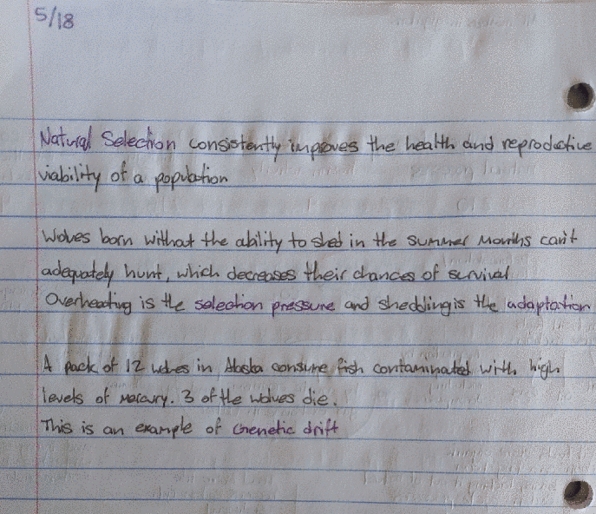 5/18
Natural Selection consistently improves the health and reproductive
viability of a population
Wolves born without the ability to shed in the summer months can't
adequately hunt, which decreases their chances of survival
Overheating is the selection pressure and shedding is the adaptation
A pack of 12 wolves in Alaska consume fish contaminated with high
levels of mercury. 3 of the wolves die.
This is an example of Genetic drift